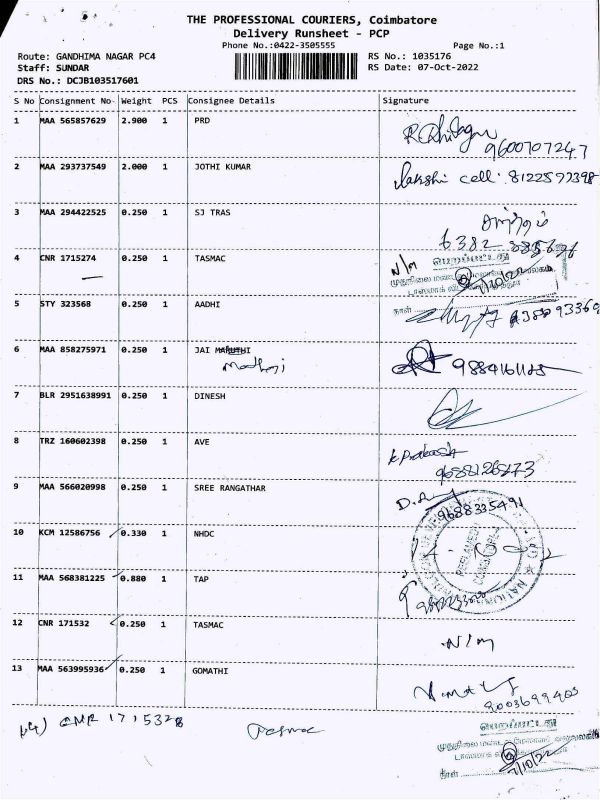 THE PROFESSIONAL COURIERS, Coimbatore
Delivery Runsheet - PCP
Phone No.:0422-3505555 Page No.:1
Route: GANDHIMA NAGAR PC4 RS No.: 1035176
Staff: SUNDAR RS Date: 07-Oct-2022
DRS No.: DCJB103517601
S No Consignment No Weight PCS Consignee Details Signature
1 MAA 565857629 2.900 1 PRD
9600707247
2 MAA 293737549 2.000 1 JOTHI KUMAR
cell: 8122577398
3 MAA 294422525 0.250 1 SJ TRAS
6382
4 CNR 1715274 0.250 1 TASMAC
N/M பெறப்பட்டது
நாள்
5 STY 323568 0.250 1 AADHI
6 MAA 858275971 0.250 1 JAI
9884161125
7 BLR 2951638991 0.250 1 DINESH
8 TRZ 160602398 0.250 1 AVE
K Prakash
9688126773
9 MAA 566020998 0.250 1 SREE RANGATHAR
9688335491
10 KCM 12586756 0.330 1 NHDC
11 MAA 568381225 0.880 1 TAP
12 CNR 171532 0.250 1 TASMAC
N/M
13 MAA 563995936 0.250 1 GOMATHI
8003699403
14) CNR 1715328 Tasmac
பெறப்பட்டது
நாள்
7/10/22